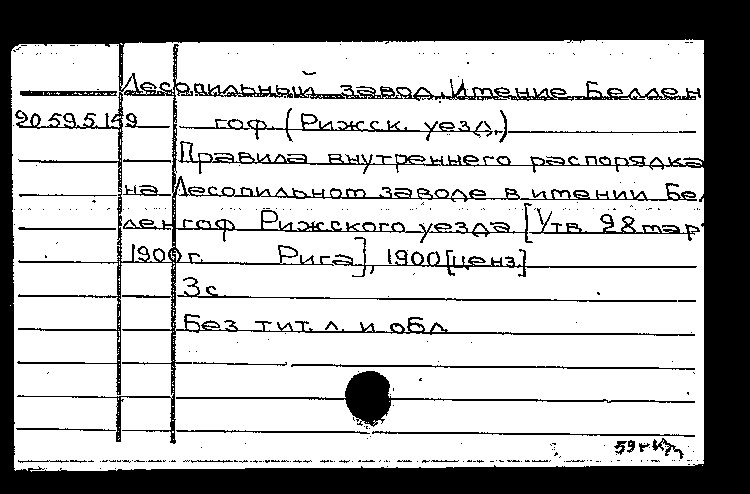 Лесопильный завод. Имение Беллен
20.59.5.159 гоф. (Рижск. уезд.)
Правила внутреннего распорядка
на Лесопильном заводе в имении Бел
ленгоф Рижского уезда [Утв. 28 мар
1900 г. Рига], 1900 [ценз.]
3 с.
Без тит. л. и обл.